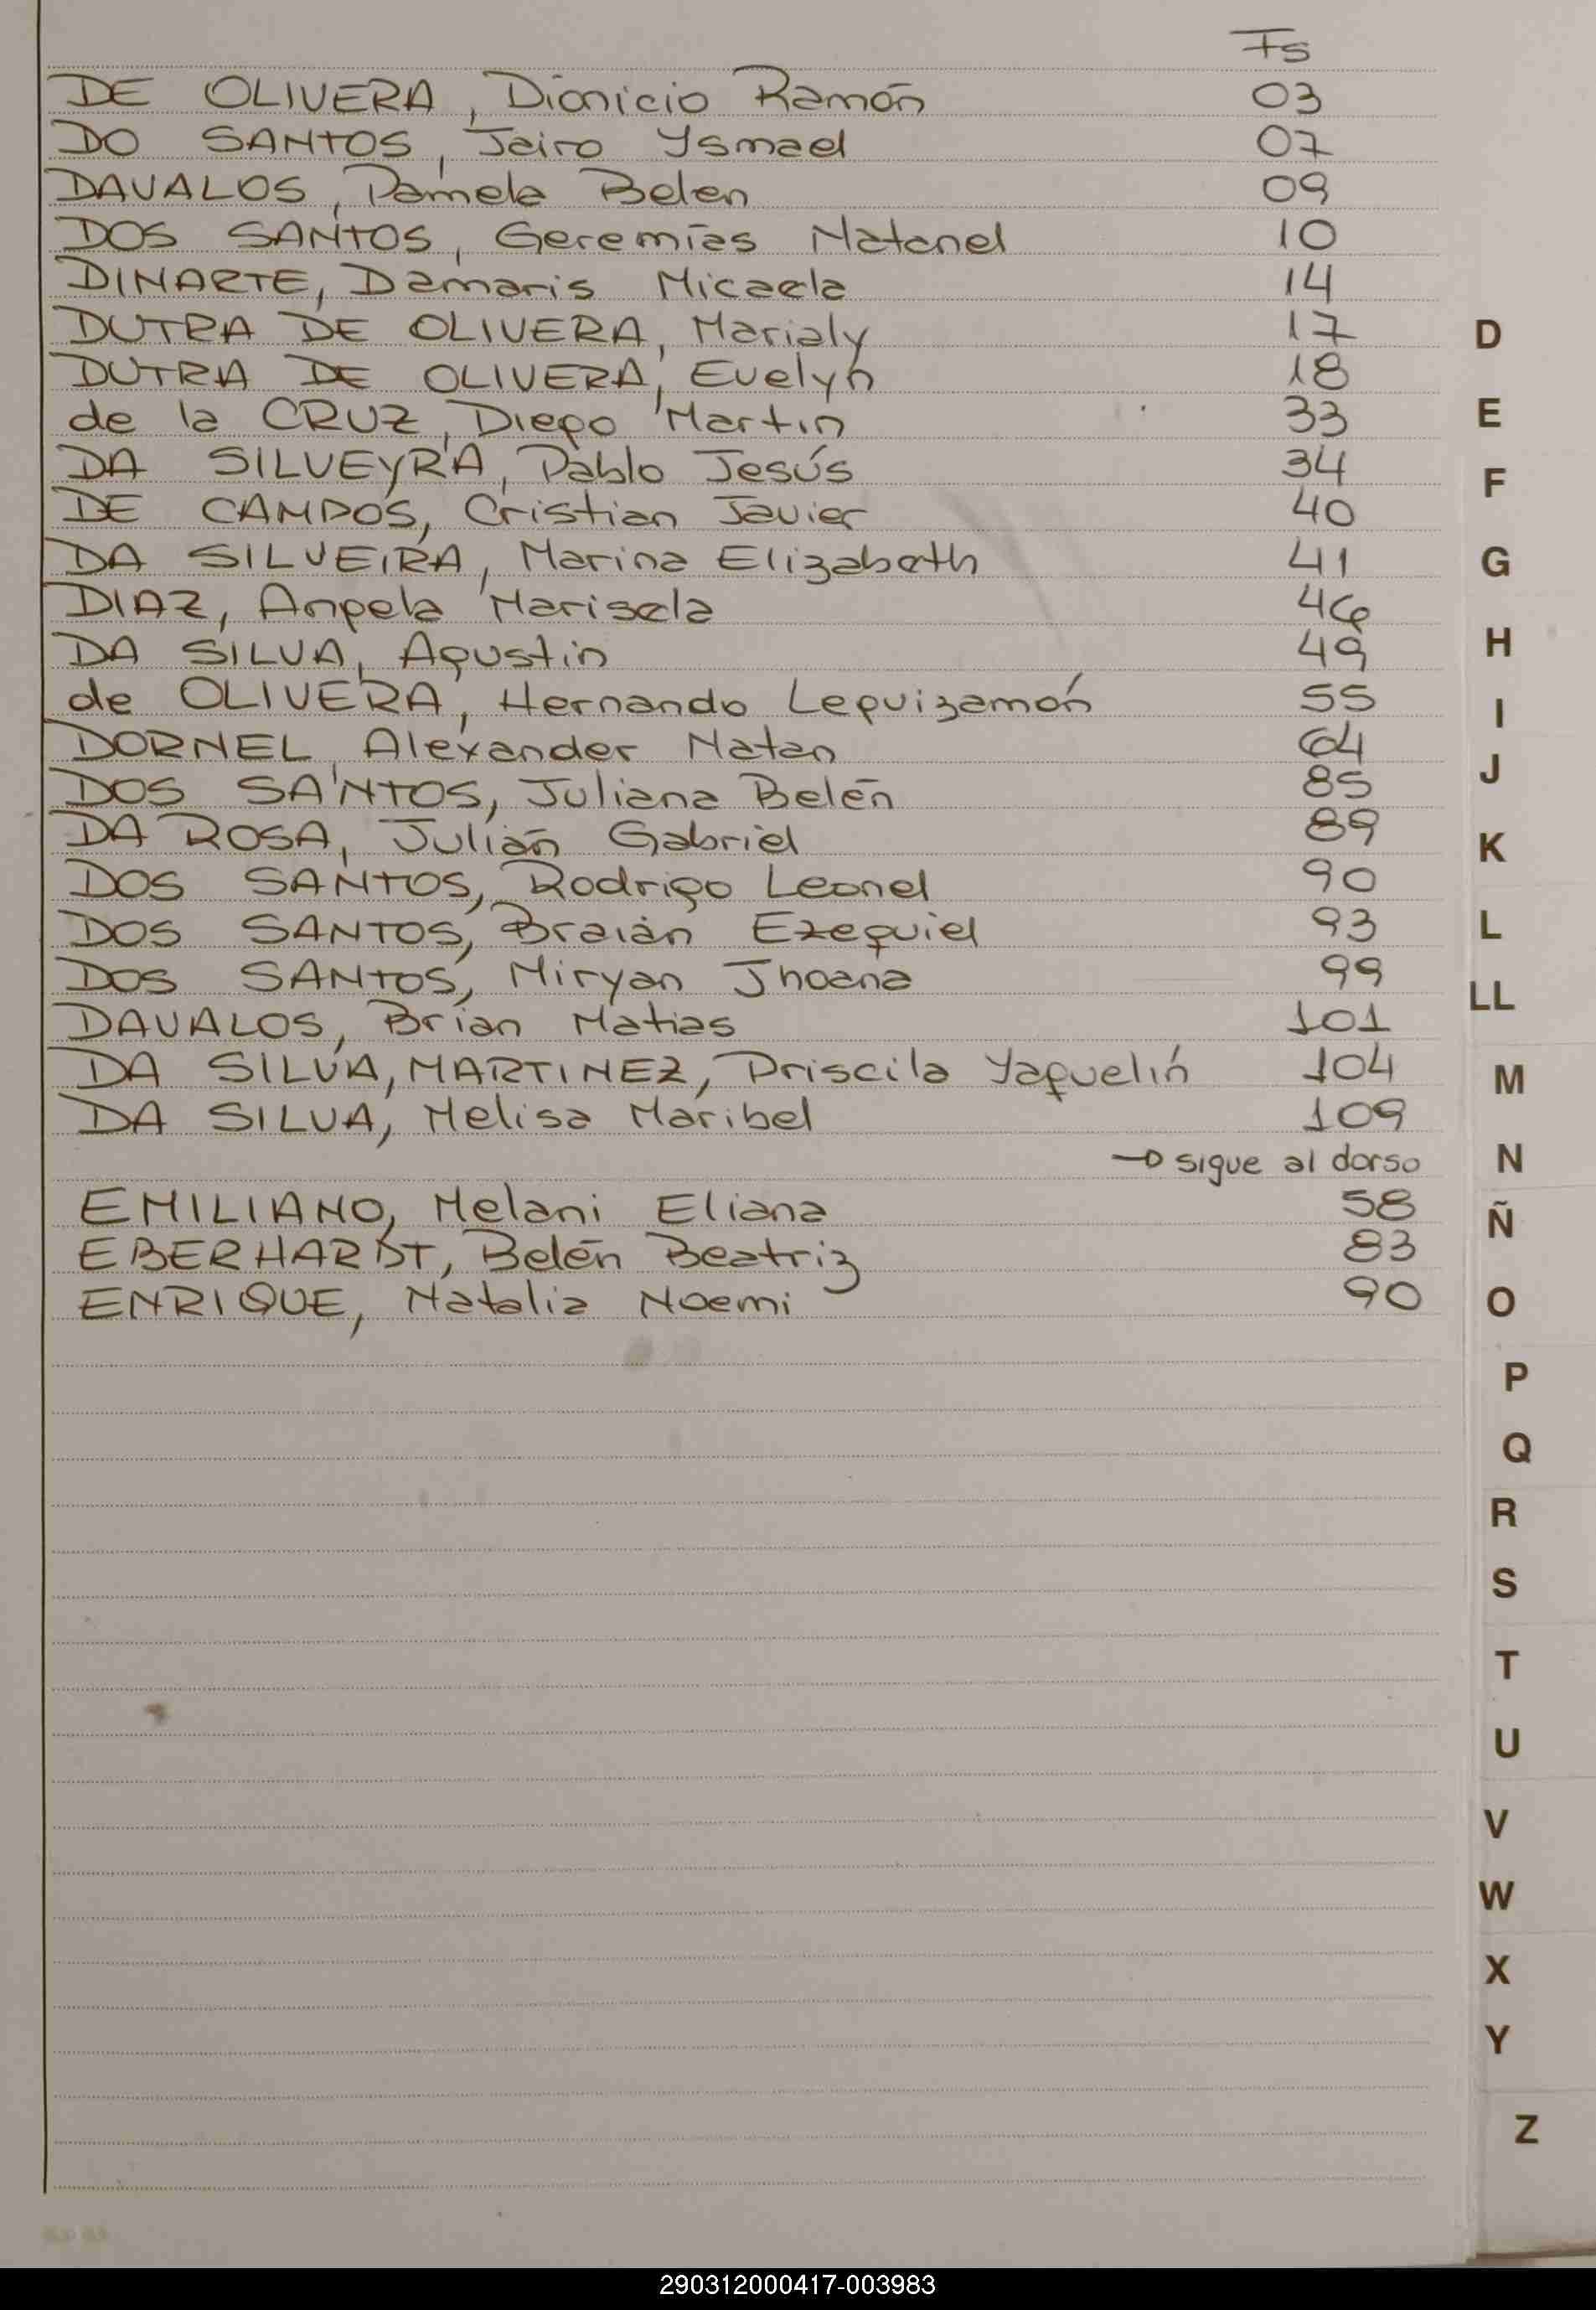 Fs
DE OLIVERA, Dionicio Ramón 03
DO SANTOS, Jairo Ysmael 07
DAVALOS, Pamela Belen 09
DOS SANTOS, Geremías Natanel 10
DINARTE, Damaris Micaela 14
DUTRA DE OLIVERA, Marialy 17
DUTRA DE OLIVERA, Evelyn 18
de la CRUZ, Diego Martin 33
DA SILVEYRA, Pablo Jesús 34
DE CAMPOS, Cristian Javier 40
DA SILVEIRA, Marina Elizabeth 41
DIAZ, Angela Marisela 46
DA SILVA, Agustin 49
de OLIVERA, Hernando Leguizamón 55
DORNEL, Alexander Natan 64
DOS SANTOS, Juliana Belén 85
DA ROSA, Julián Gabriel 89
DOS SANTOS, Rodrigo Leonel 90
DOS SANTOS, Braian Ezequiel 93
DOS SANTOS, Miryan Jhoana 99
DAVALOS, Brian Matias 101
DA SILVA, MARTINEZ, Priscila Yaquelín 104
DA SILVA, Melisa Maribel 109
→ sigue al dorso
EMILIANO, Melani Eliana 58
EBERHARDT, Belén Beatriz 83
ENRIQUE, Natalia Noemi 90
D
E
F
G
H
I
J
K
L
LL
M
N
Ñ
O
P
Q
R
S
T
U
V
W
X
Y
Z
290312000417-003983